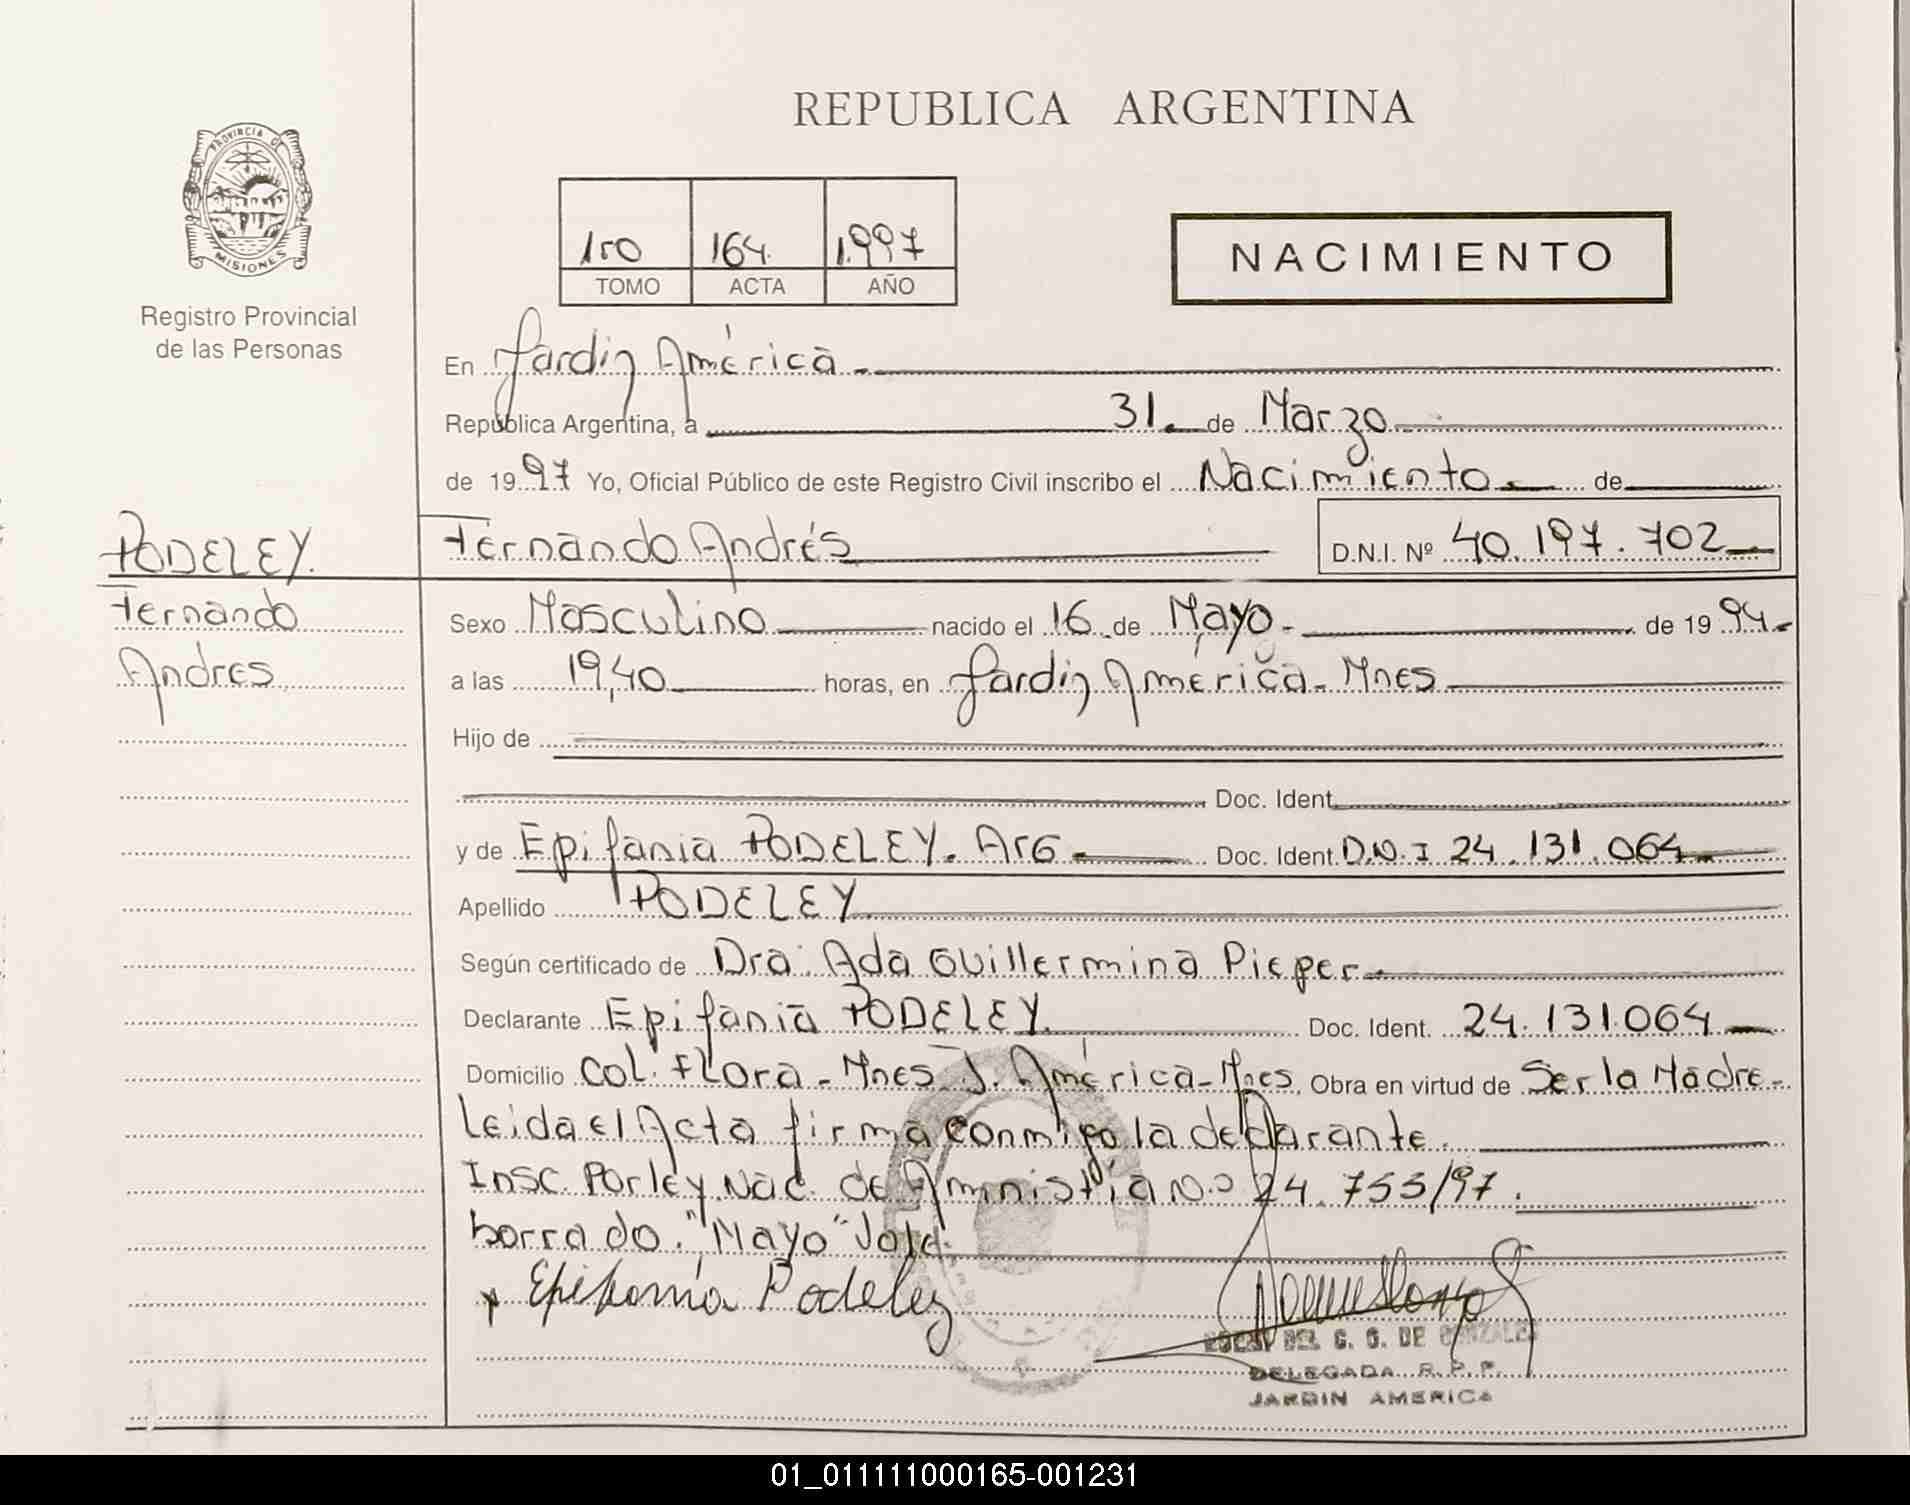 REPUBLICA ARGENTINA
PROVINCIA DE
MISIONES
Registro Provincial
de las Personas
1ro 164. 1.997
TOMO ACTA AÑO
NACIMIENTO
En Jardin América.-
República Argentina, a 31. de Marzo
de 1997 Yo, Oficial Público de este Registro Civil inscribo el Nacimiento.- de
PODELEY.
Fernando
Andres
Fernando Andrés
D.N.I. Nº 40.197.702
Sexo Masculino nacido el 16 de Mayo.- de 1994.-
a las 19,40 horas, en Jardin América.- Mnes
Hijo de
Doc. Ident.
y de Epifania PODELEY. Arg.- Doc. Ident. D.N.I 24.131.064
Apellido PODELEY
Según certificado de Dra. Ada Guillermina Pieper.-
Declarante Epifania PODELEY. Doc. Ident. 24.131.064
Domicilio Col. Flora - Mnes J. América - Mnes. Obra en virtud de Ser la Madre.-
Leida el Acta firma conmigo la declarante.
Insc. Por ley Nac. de Amnistía N.º 24.755/97.
borrado. "Mayo" Vale.
x Epifania Podeley
DEL C. G. DE GONZALEZ
DELEGADA R.P.P.
JARDIN AMERICA
01_011111000165-001231